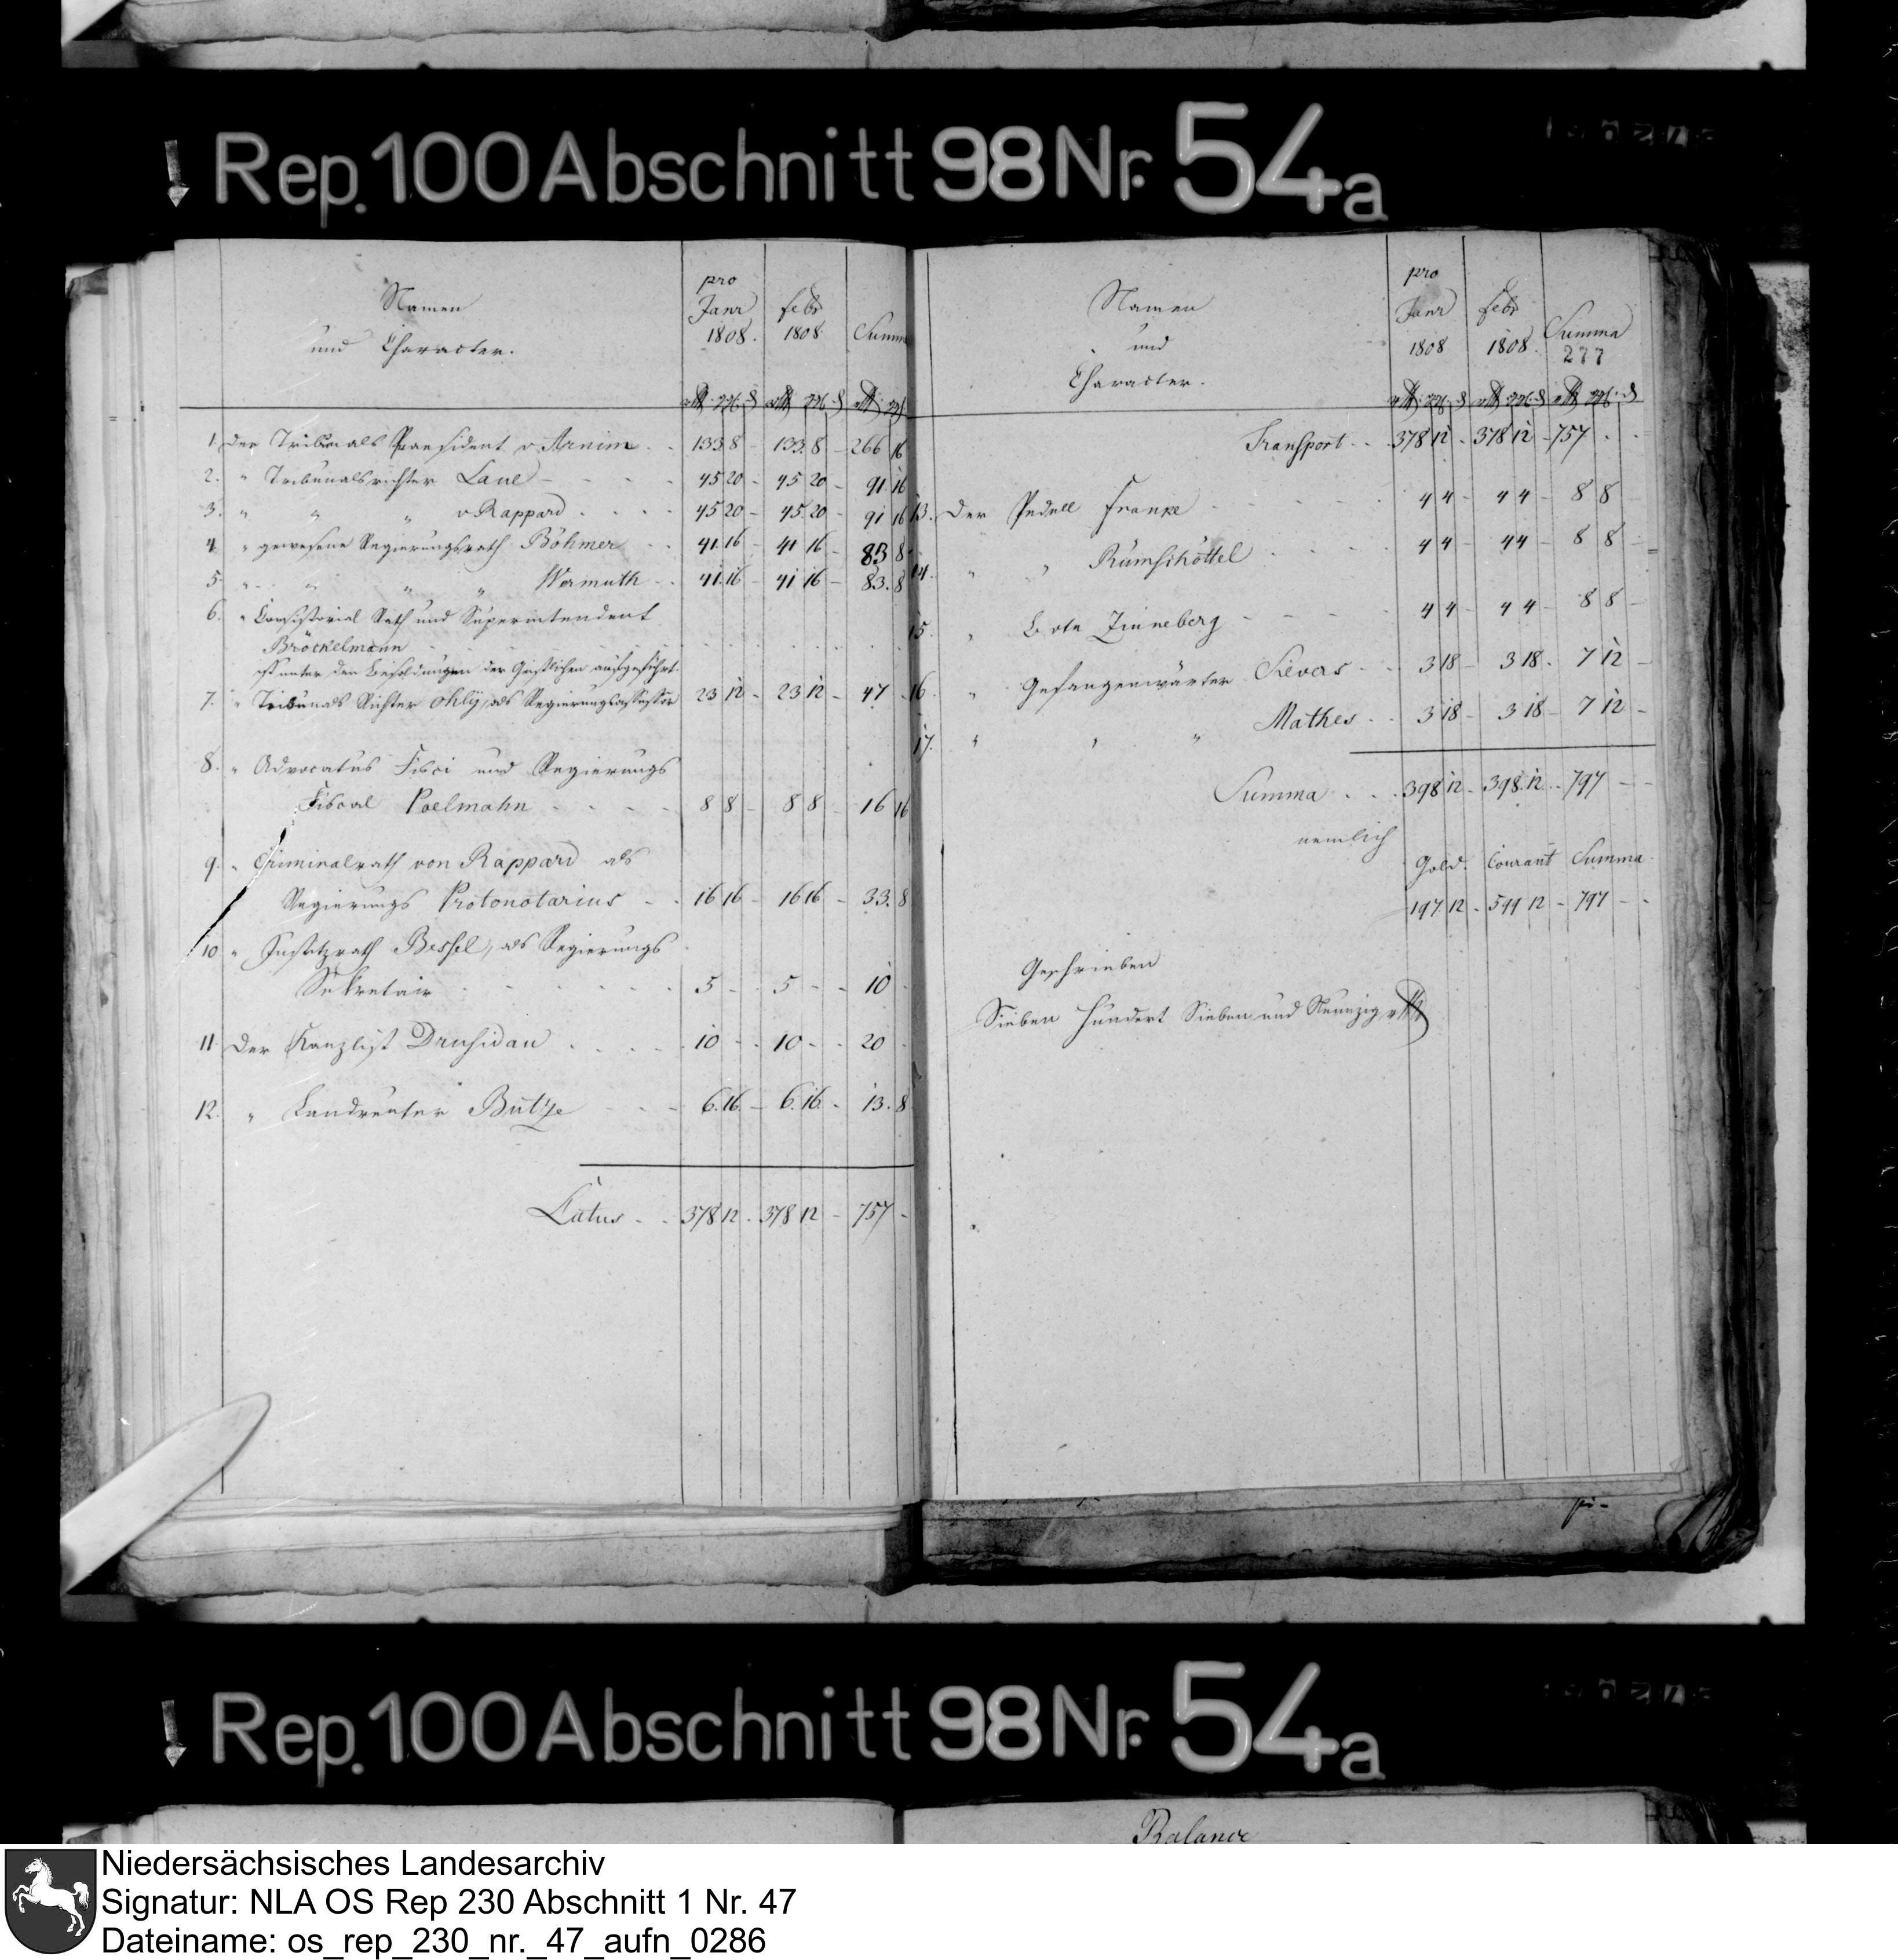 Rep. 100 Abschnitt 98 Nr. 54a
Namen
und Character.
pro
Janr 1808.
febr 1808
Summa
1. Der Tribunals Praesident v Arnim . . 133 8 - 133. 8 - 266 16
2. " Tribunalsrichter Laue - - - - 45 20 - 45 20 - 91. 16
3. " " " v Rappard . . . . 45 20 - 45. 20 - 91 16
4 " gewesene Regierungsrath Böhmer - - 41. 16 - 41 16 - 83 8
5 " " " " Wermuth - . 41. 16 - 41 16 - 83. 8
6. " Consistorial Rath und Superintendent
Bröckelmann
ist unter den Besoldungen der Geistlichen aufgeführt.
7. " Tribunals Richter Ohly, als Regierungsassessor 23 12 - 23 12 - 47 -
8. " Advocatus Fisci und Regierungs
Fiscal Poelmahn - - - - 8 8 - 8 8 - 16 16
9. " Criminalrath von Rappard als
Regierungs Protonotarius - - 16 16 - 16 16 - 33. 8
10 " Justitzrath Bessel, als Regierungs
Sekretair - - - - - - 5 - - 5 - - 10 -
11 Der Kanzlist Drusidau . . . . 10 - - 10 - - 20 -
12. " Landreuter Butze - - - 6. 16. - 6. 16. - 13. 8
Latus - . 378 12 - 378 12 - 757 -
Namen
und
Character.
pro
Janr 1808
febr 1808.
Summa
277
Transport - . 378 12 - 378 12 - 757 - -
13. Der Pedell Franke - - - - 4 4 - 4 4 - 8 8 -
14. " " Rümschöttel . - - - 4 4 - 4 4 - 8 8 -
15. " Bote Zinneberg - - - - 4 4 - 4 4 - 8 8 -
16. " Gefangenwärter Sievers - - 3 18 - 3 18 - 7 12 -
17. " " " Mathes - - 3 18 - 3 18 - 7 12 -
Summa . . . 398 12 - 398. 12 - 797 - -
nemlich
Gold. Courant Summa.
197. 12 - 599 12 - 797 - -
Geschrieben
Sieben Hundert Sieben und Neunzig rthl
Rep. 100 Abschnitt 98 Nr. 54a
Balance
Niedersächsisches Landesarchiv
Signatur: NLA OS Rep 230 Abschnitt 1 Nr. 47
Dateiname: os_rep_230_nr._47_aufn_0286